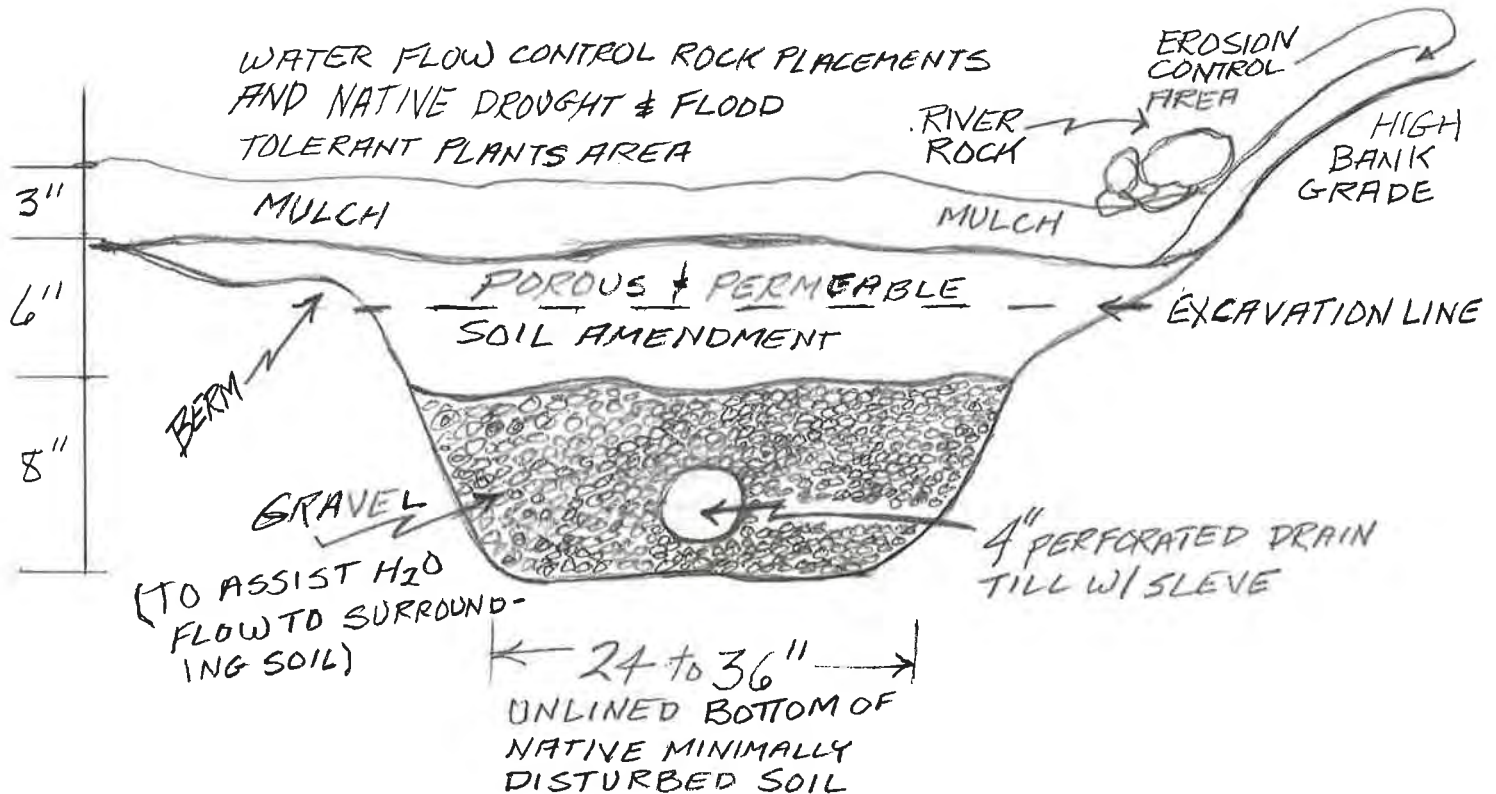 WATER FLOW CONTROL ROCK PLACEMENTS
AND NATIVE DROUGHT & FLOOD
TOLERANT PLANTS AREA
EROSION
CONTROL
AREA
RIVER
ROCK
HIGH
BANK
GRADE
3"
MULCH
MULCH
6"
POROUS & PERMEABLE
SOIL AMENDMENT
EXCAVATION LINE
BERM
8"
GRAVEL
(TO ASSIST H2O
FLOW TO SURROUND-
ING SOIL)
4" PERFORATED DRAIN
TILL W/ SLEVE
24 to 36"
UNLINED BOTTOM OF
NATIVE MINIMALLY
DISTURBED SOIL